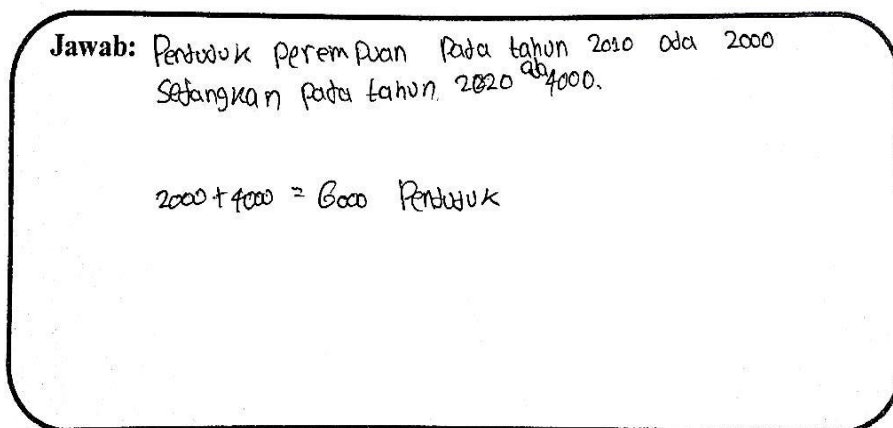 Jawab: Penduduk perempuan pada tahun 2010 ada 2000
sedangkan pada tahun 2020 ada 4000.
2000 + 4000 = 6000 Penduduk